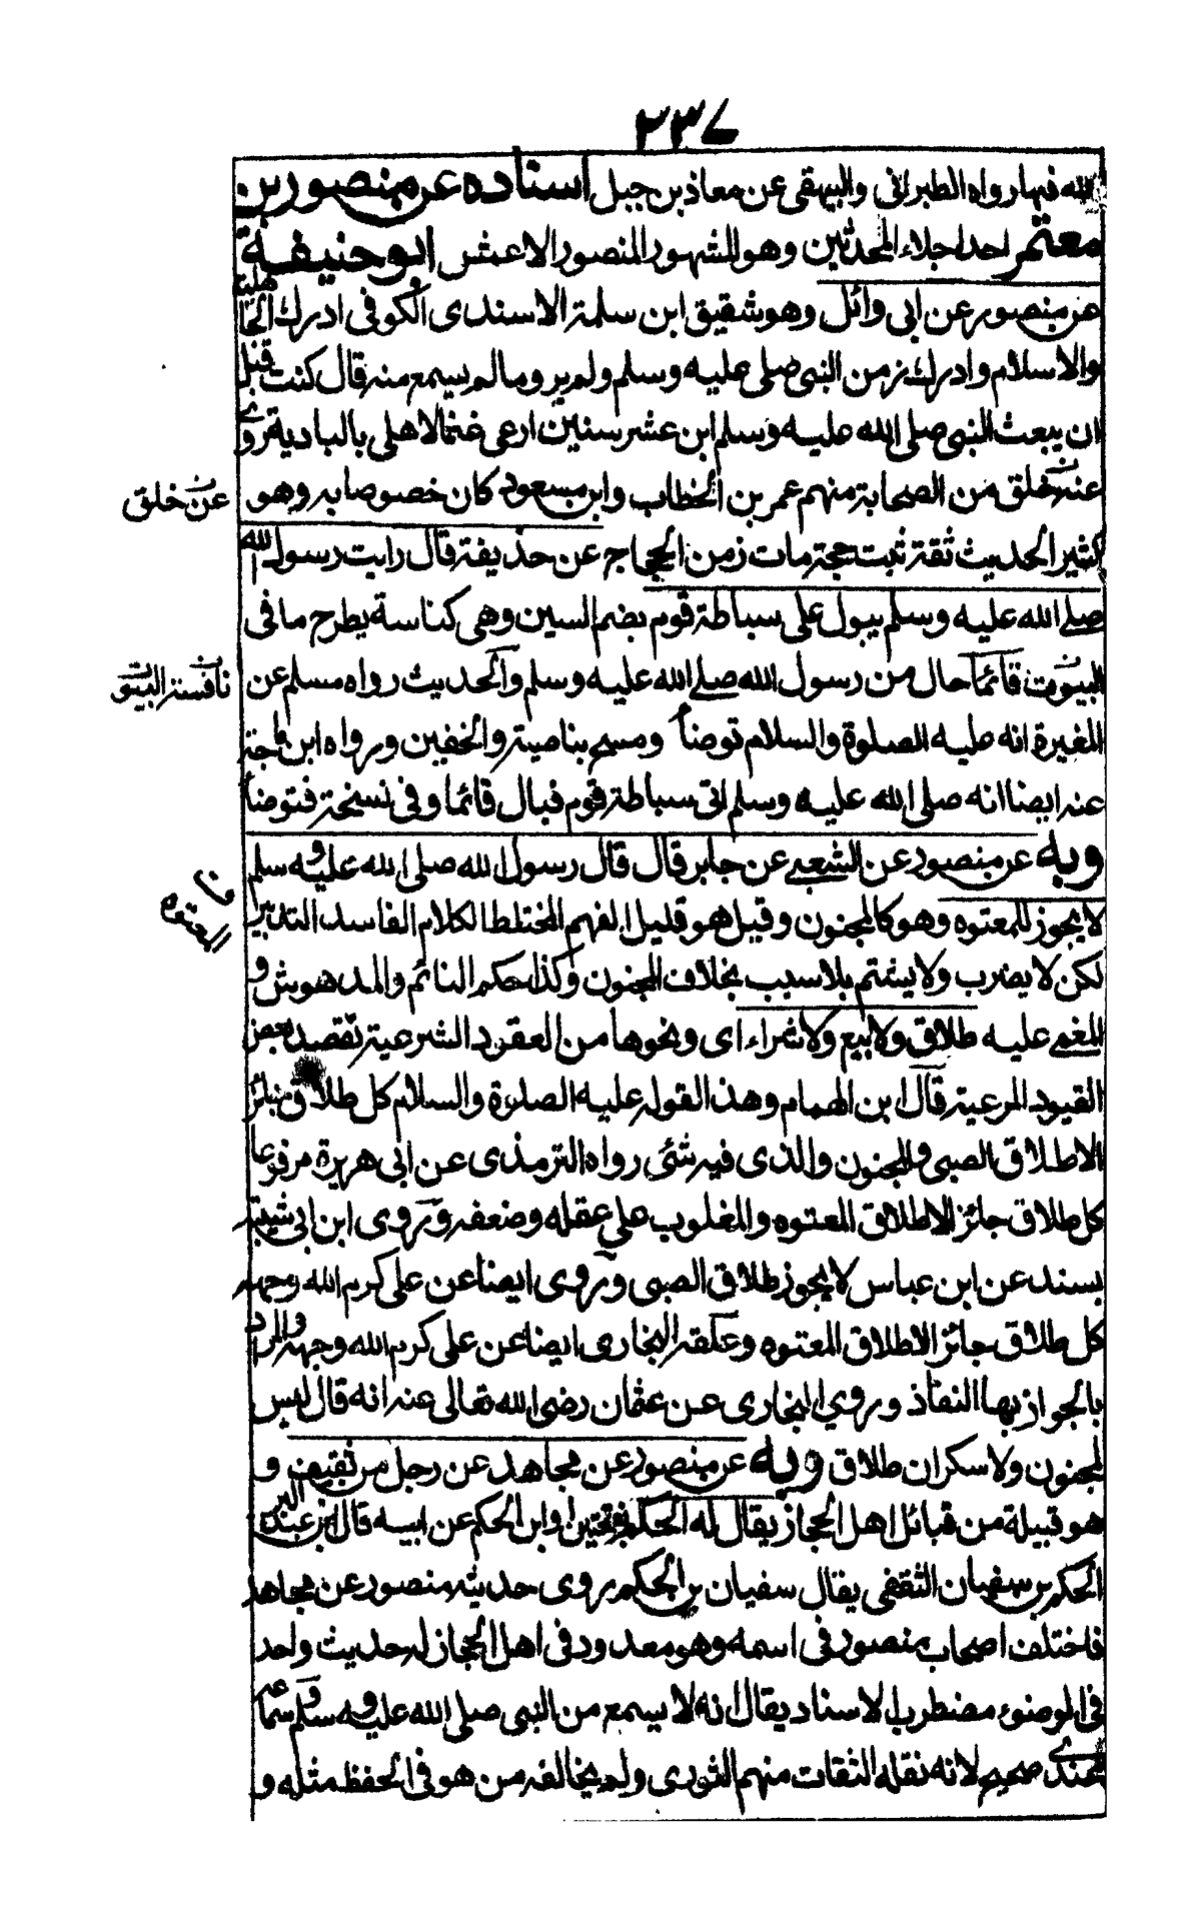 ٢٣٧
الله فيها رواه الطبرانى والبيهقى عن معاذ بن جبل اسناده عن منصور بن
معتمر احد اجلاء المحدثين وهو المشهور المنصور الاعمش ابو حنيفة
عن منصور عن ابى وائل وهو شقيق ابن سلمة الاسندى الكوفى ادرك الجاهلية
والاسلام وادرك زمن النبى صلى عليه وسلم ولم ير وما لم يسمع منه قال كنت قبل
ان يبعث النبى صلى الله عليه وسلم ابن عشر سنين ارعى غنما لاهلى بالبادية روى
عنه خلق من الصحابة منهم عمر بن الخطاب وابن مسعود كان خصوصا به وهو
عن خلق
كثير الحديث ثقة ثبت حجة مات زمن الحجاج عن حذيفة قال رايت رسول الله
صلى الله عليه وسلم يبول على سباطة قوم بضم السين وهى كناسة يطرح ما فى
البيوت قائما حال من رسول الله صلى الله عليه وسلم والحديث رواه مسلم عن
المغيرة انه عليه الصلوة والسلام توضأ ومسح بناصيته والخفين ورواه ابن ماجة
عنه ايضا انه صلى الله عليه وسلم اتى سباطة قوم فبال قائما وفى نسخة فتوضأ
وبه عن منصور عن الشعبى عن جابر قال قال رسول الله صلى الله عليه وسلم
لا يجوز للمعتوه وهو كالمجنون وقيل هو قليل الفهم المختلط الكلام الفاسد التدبير
المعتوه
لكن لا يضرب ولا يشتم بلا سبب بخلاف المجنون وكذا حكم النائم والمدهوش و
المغمى عليه طلاق ولا بيع ولا شراء اى ونحوها من العقود الشرعية تقصد بعض
القيود المرعية قال ابن الهمام وهذا لقوله عليه الصلوة والسلام كل طلاق جائز
الاطلاق الصبى والمجنون والذى فيه شئ رواه الترمذى عن ابى هريرة مرفوعا
كل طلاق جائز الا طلاق المعتوه والمغلوب على عقله وضعفه وروى ابن ابى شيبة
بسنده عن ابن عباس لا يجوز طلاق الصبى وروى ايضا عن على كرم الله وجهه
كل طلاق جائز الاطلاق المعتوه وعلقه البخارى ايضا عن على كرم الله وجهه والمراد
بالجواز بها النفاذ وروى البخارى عن عثمان رضى الله تعالى عنه انه قال ليس
لمجنون ولا سكران طلاق وبه عن منصور عن مجاهد عن رجل من ثقيف و
هو قبيلة من قبائل اهل الحجاز يقال له الحكم بفتحتين او ابن الحكم عن ابيه قال ابن عبد البر
الحكم بن سفيان الثقفى يقال سفيان بن الحكم روى حديثه منصور عن مجاهد
فاختلف اصحاب منصور فى اسمه وهو معدود فى اهل الحجاز له حديث واحد
فى الوضوء مضطرب الاسناد يقال انه لا يسمع من النبى صلى الله عليه وسلم وسماعه
عندى صحيح لانه نقله الثقات منهم الثورى ولم يخالفه من هو فى الحفظ مثله و